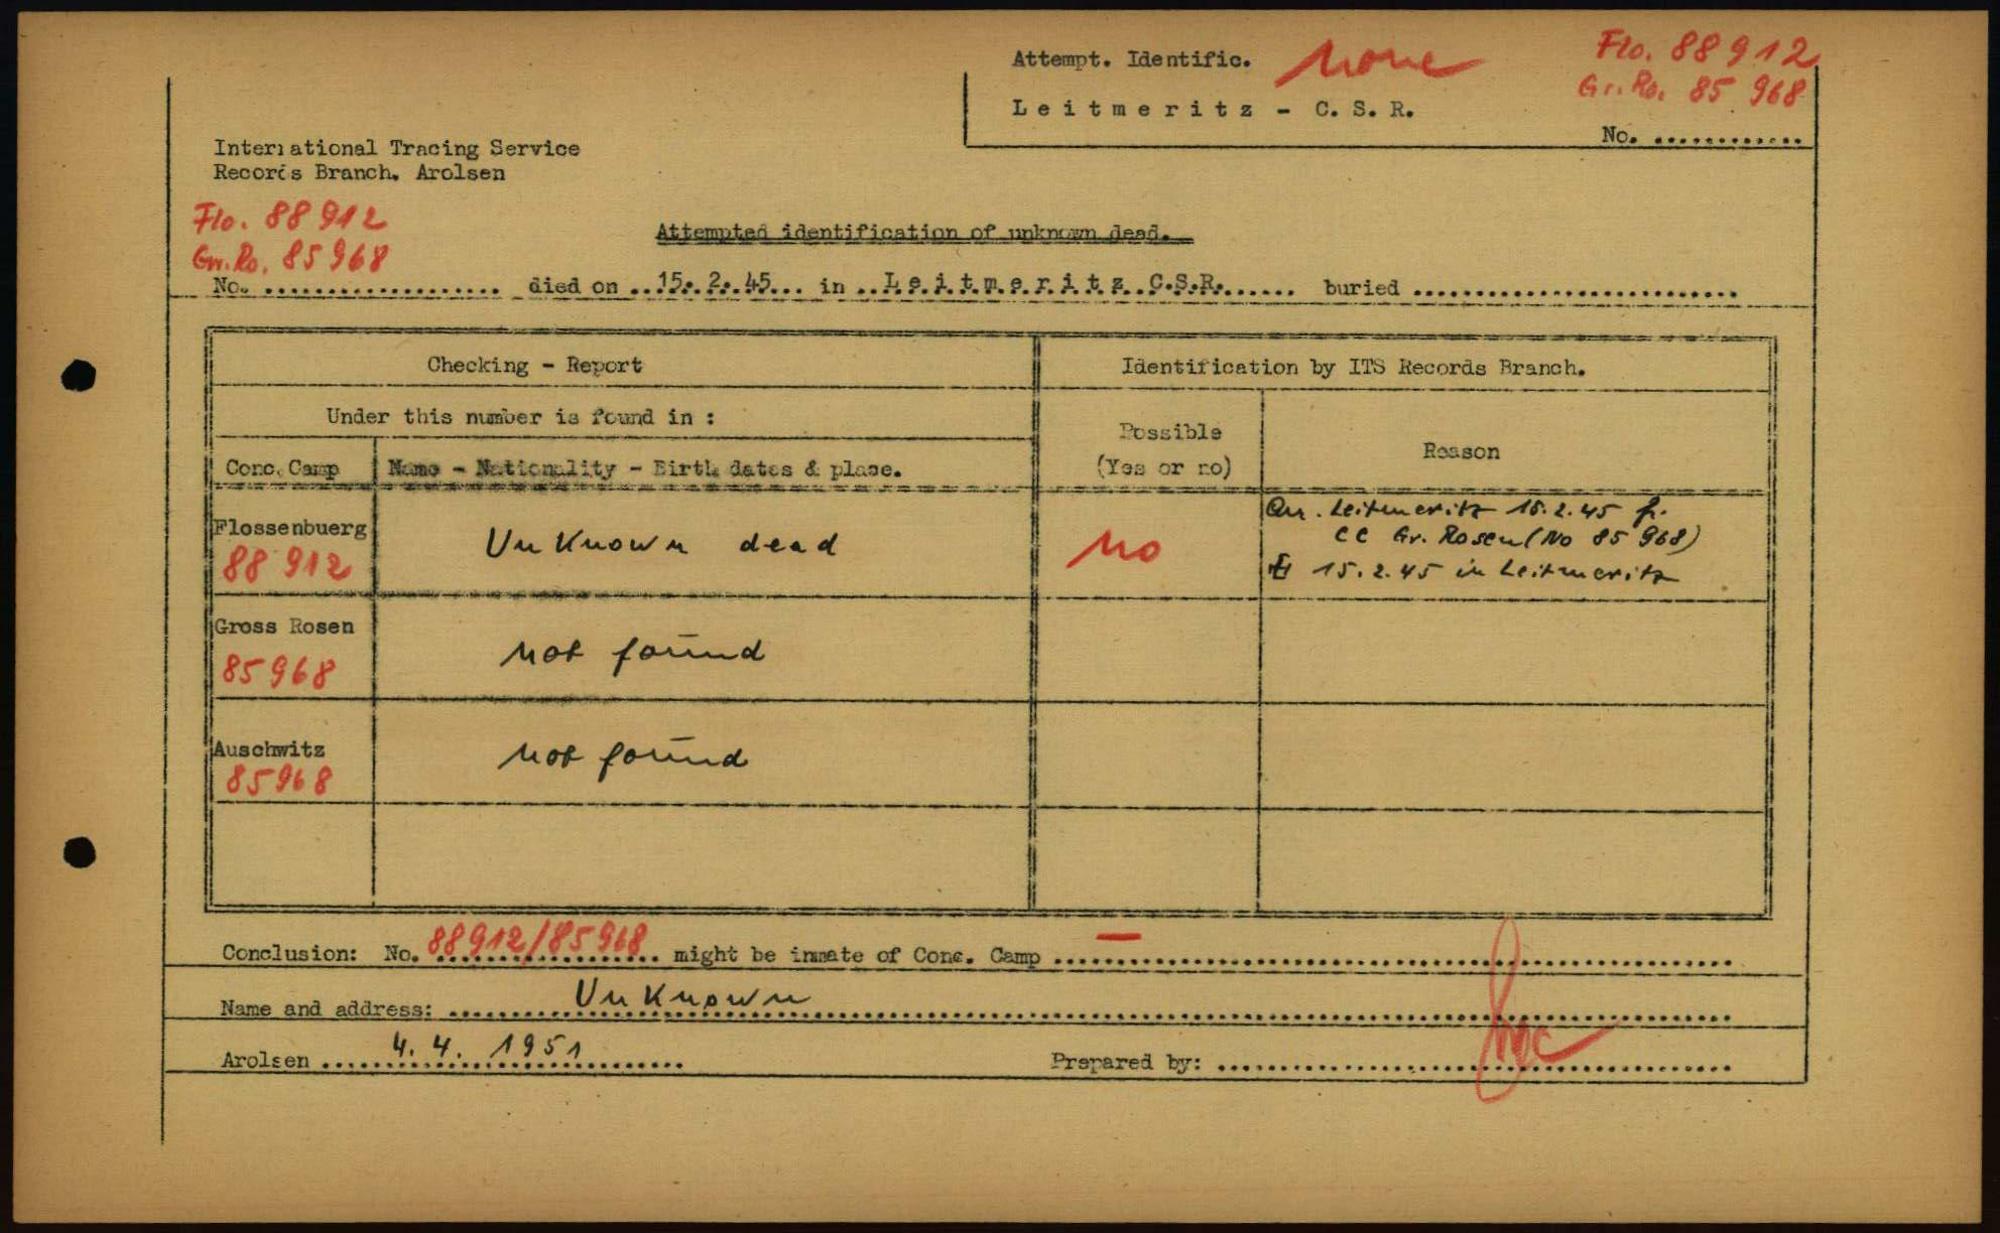 Attempt. Identific. none
Flo. 88 912
Gr. Ro. 85 968
Leitmeritz - C. S. R.
No. ............
International Tracing Service
Records Branch. Arolsen
Flo. 88 912
Gr. Ro. 85 968
Attempted identification of unknown dead.
No. .................. died on ...15. 2. 45... in ..Leitmeritz C.S.R....... buried ..........................
Checking - Report
Identification by ITS Records Branch.
Under this number is found in :
Possible
(Yes or no)
Reason
Conc. Camp
Name - Nationality - Birth dates & place.
Flossenbuerg
88 912
Unknown dead
no
Arr. Leitmeritz 15.2.45 fr.
CC Gr. Rosen (No 85 968)
15.2.45 in Leitmeritz
Gross Rosen
85968
not found
Auschwitz
85968
not found
Conclusion: No. 88912/85968 might be inmate of Conc. Camp — ..........................
Name and address: Unknown
Arolsen 4. 4. 1951
Prepared by: ..........................